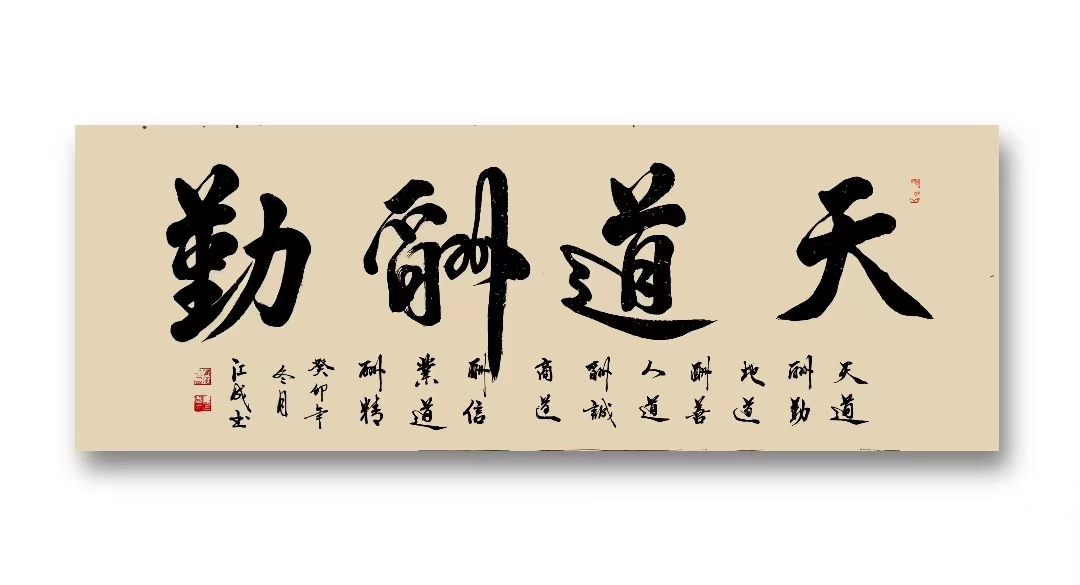 天道酬勤
天道
酬勤
地道
酬善
人道
酬誠
商道
酬信
業道
酬精
癸卯年
冬月
江成書